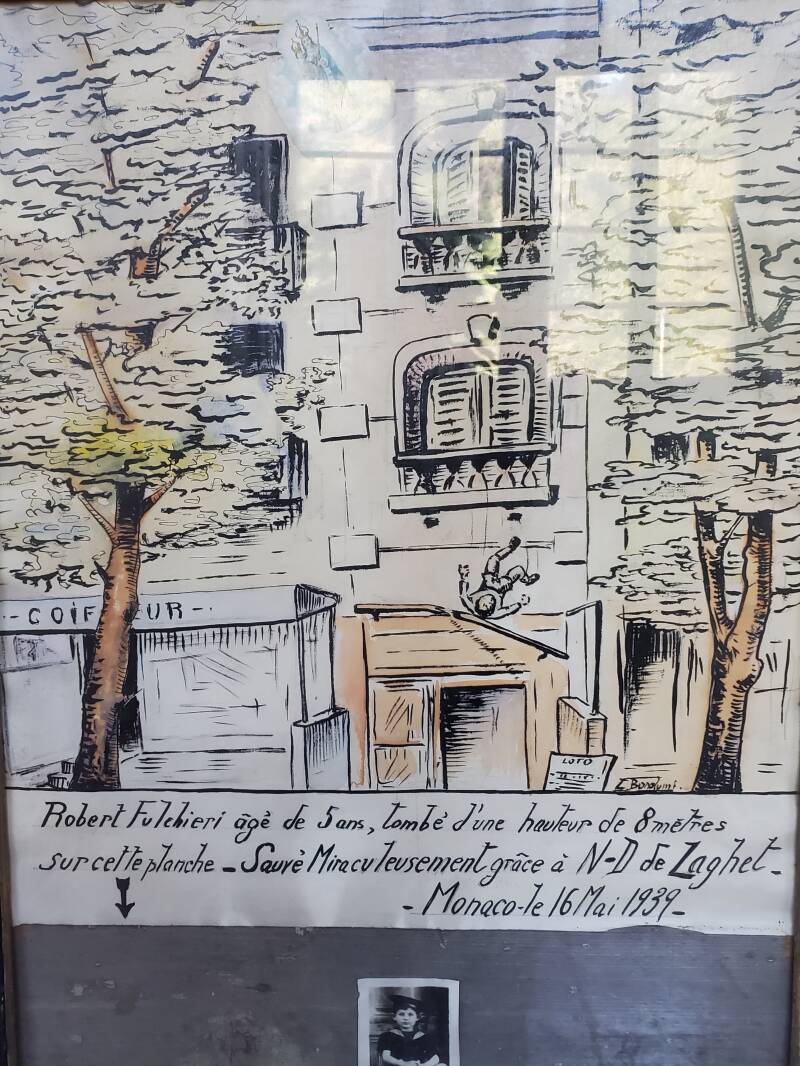 - COIFFEUR -
LOTO
E. Bonolumi
Robert Fulchieri âgè de 5 ans, tombé d'une hauteur de 8 mètres
sur cette planche - Sauvè Miraculeusement grâce à N-D de Laghet -
- Monaco - le 16 Mai 1939 -